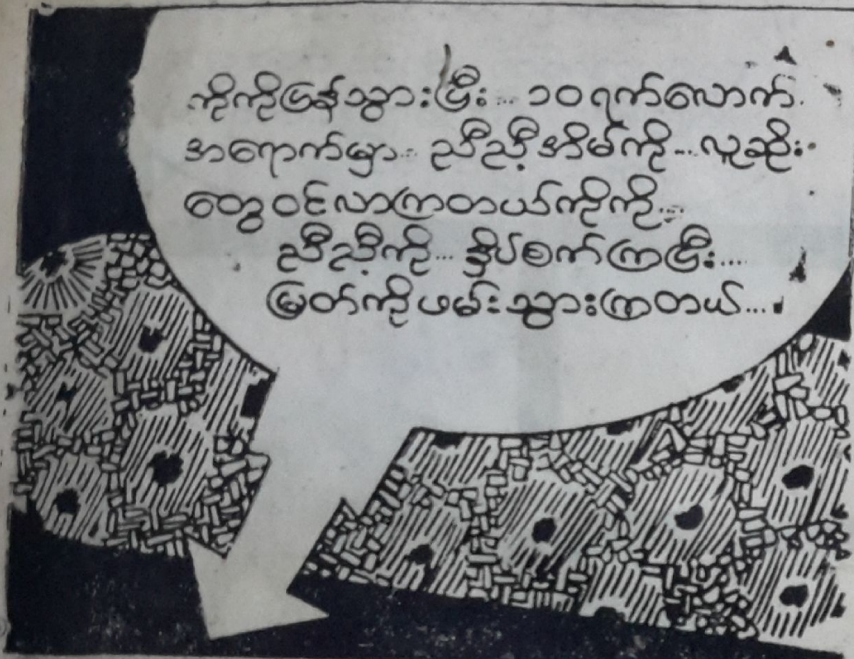 ကိုကိုပြန်သွားပြီး... ၁၀ရက်လောက်
အရောက်မှာ... ညီညီ့အိမ်ကို...လူဆိုး
တွေဝင်လာကြတယ်ကိုကို...
ညီညီ့ကို... နှိပ်စက်ကြပြီး....
မြတ်ကိုဖမ်းသွားကြတယ်....